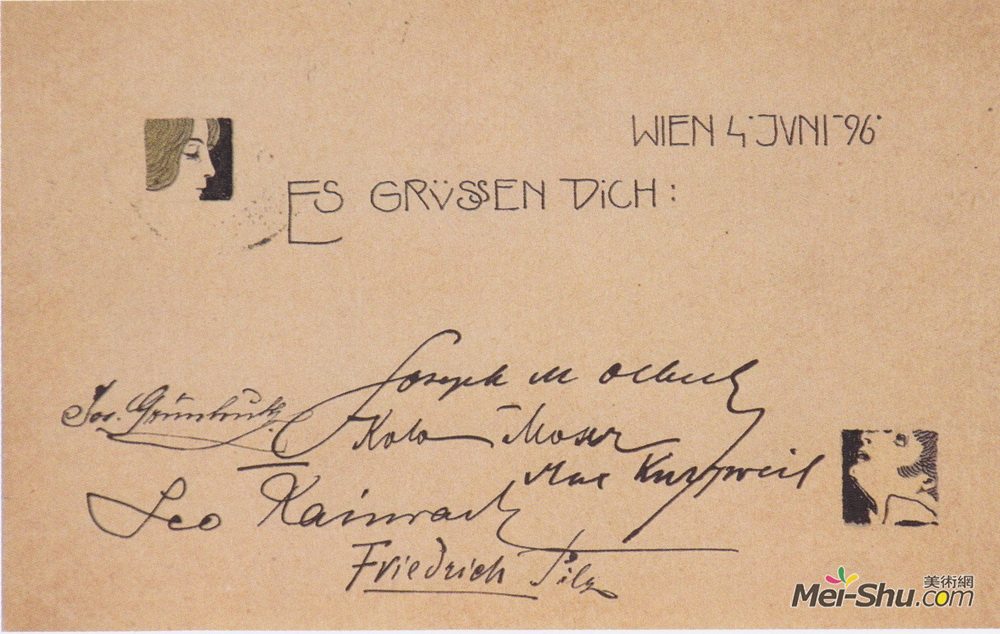 WIEN 4. JVNI-96.
ES GRÜSSEN DICH:
Joseph M Olbrich
Jos.
Kolo Moser
Max Kurzweil
Leo Kainradl
Friedrich Pilz
美術網
Mei-Shu.com